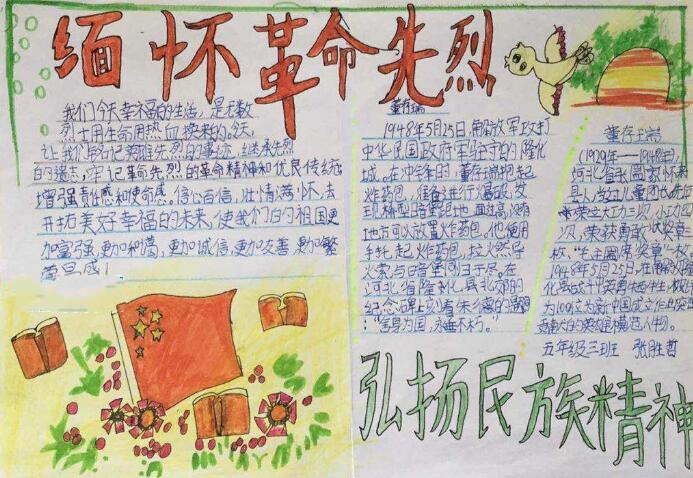 缅怀革命先烈
我们今天幸福的生活，是无数
烈士用生命用热血换来的。今天，
让我们牢记英雄先烈的事迹，继承先烈
的遗志，牢记革命先烈的革命精神和优良传统
增强责任感和使命感。信心百倍，壮情满怀，去
开拓美好幸福的未来，使我们的祖国更
加富强，更加和谐，更加诚信，更加友善，更加繁
荣昌盛！
董存瑞
1948年5月25日，解放军攻打
中华民国政府军驻守的隆化
城。在冲锋时，董存瑞抱起
炸药包，准备进行爆破，发
到桥型暗堡距地面过高，没有
地方可以放置炸药包，他便用
手托起炸药包，拉火然导
火索，与暗堡同归于尽。在
河北省隆化县北郊的
纪念碑上刻着朱德的题
："舍身为国，永垂不朽。"
董存瑞
(1929年——1948年)，
河北省张家口怀来
县人，当过儿童团长，先后
荣立大功三次，小功四
次，荣获勇敢
"毛主席奖章"
1948年5月25日，在解放
化
为100位为新中国成立作出突
英雄模范人物。
五年级三班 张胜哲
弘扬民族精神